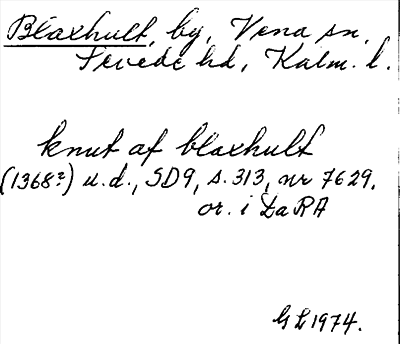 Blaxhult, by, Vena sn,
Sevede hd, Kalm. l.
knut af blaxhult
(1368?) u.d., SD9, s. 313, nr 7629.
or. i DaRA
GL 1974.